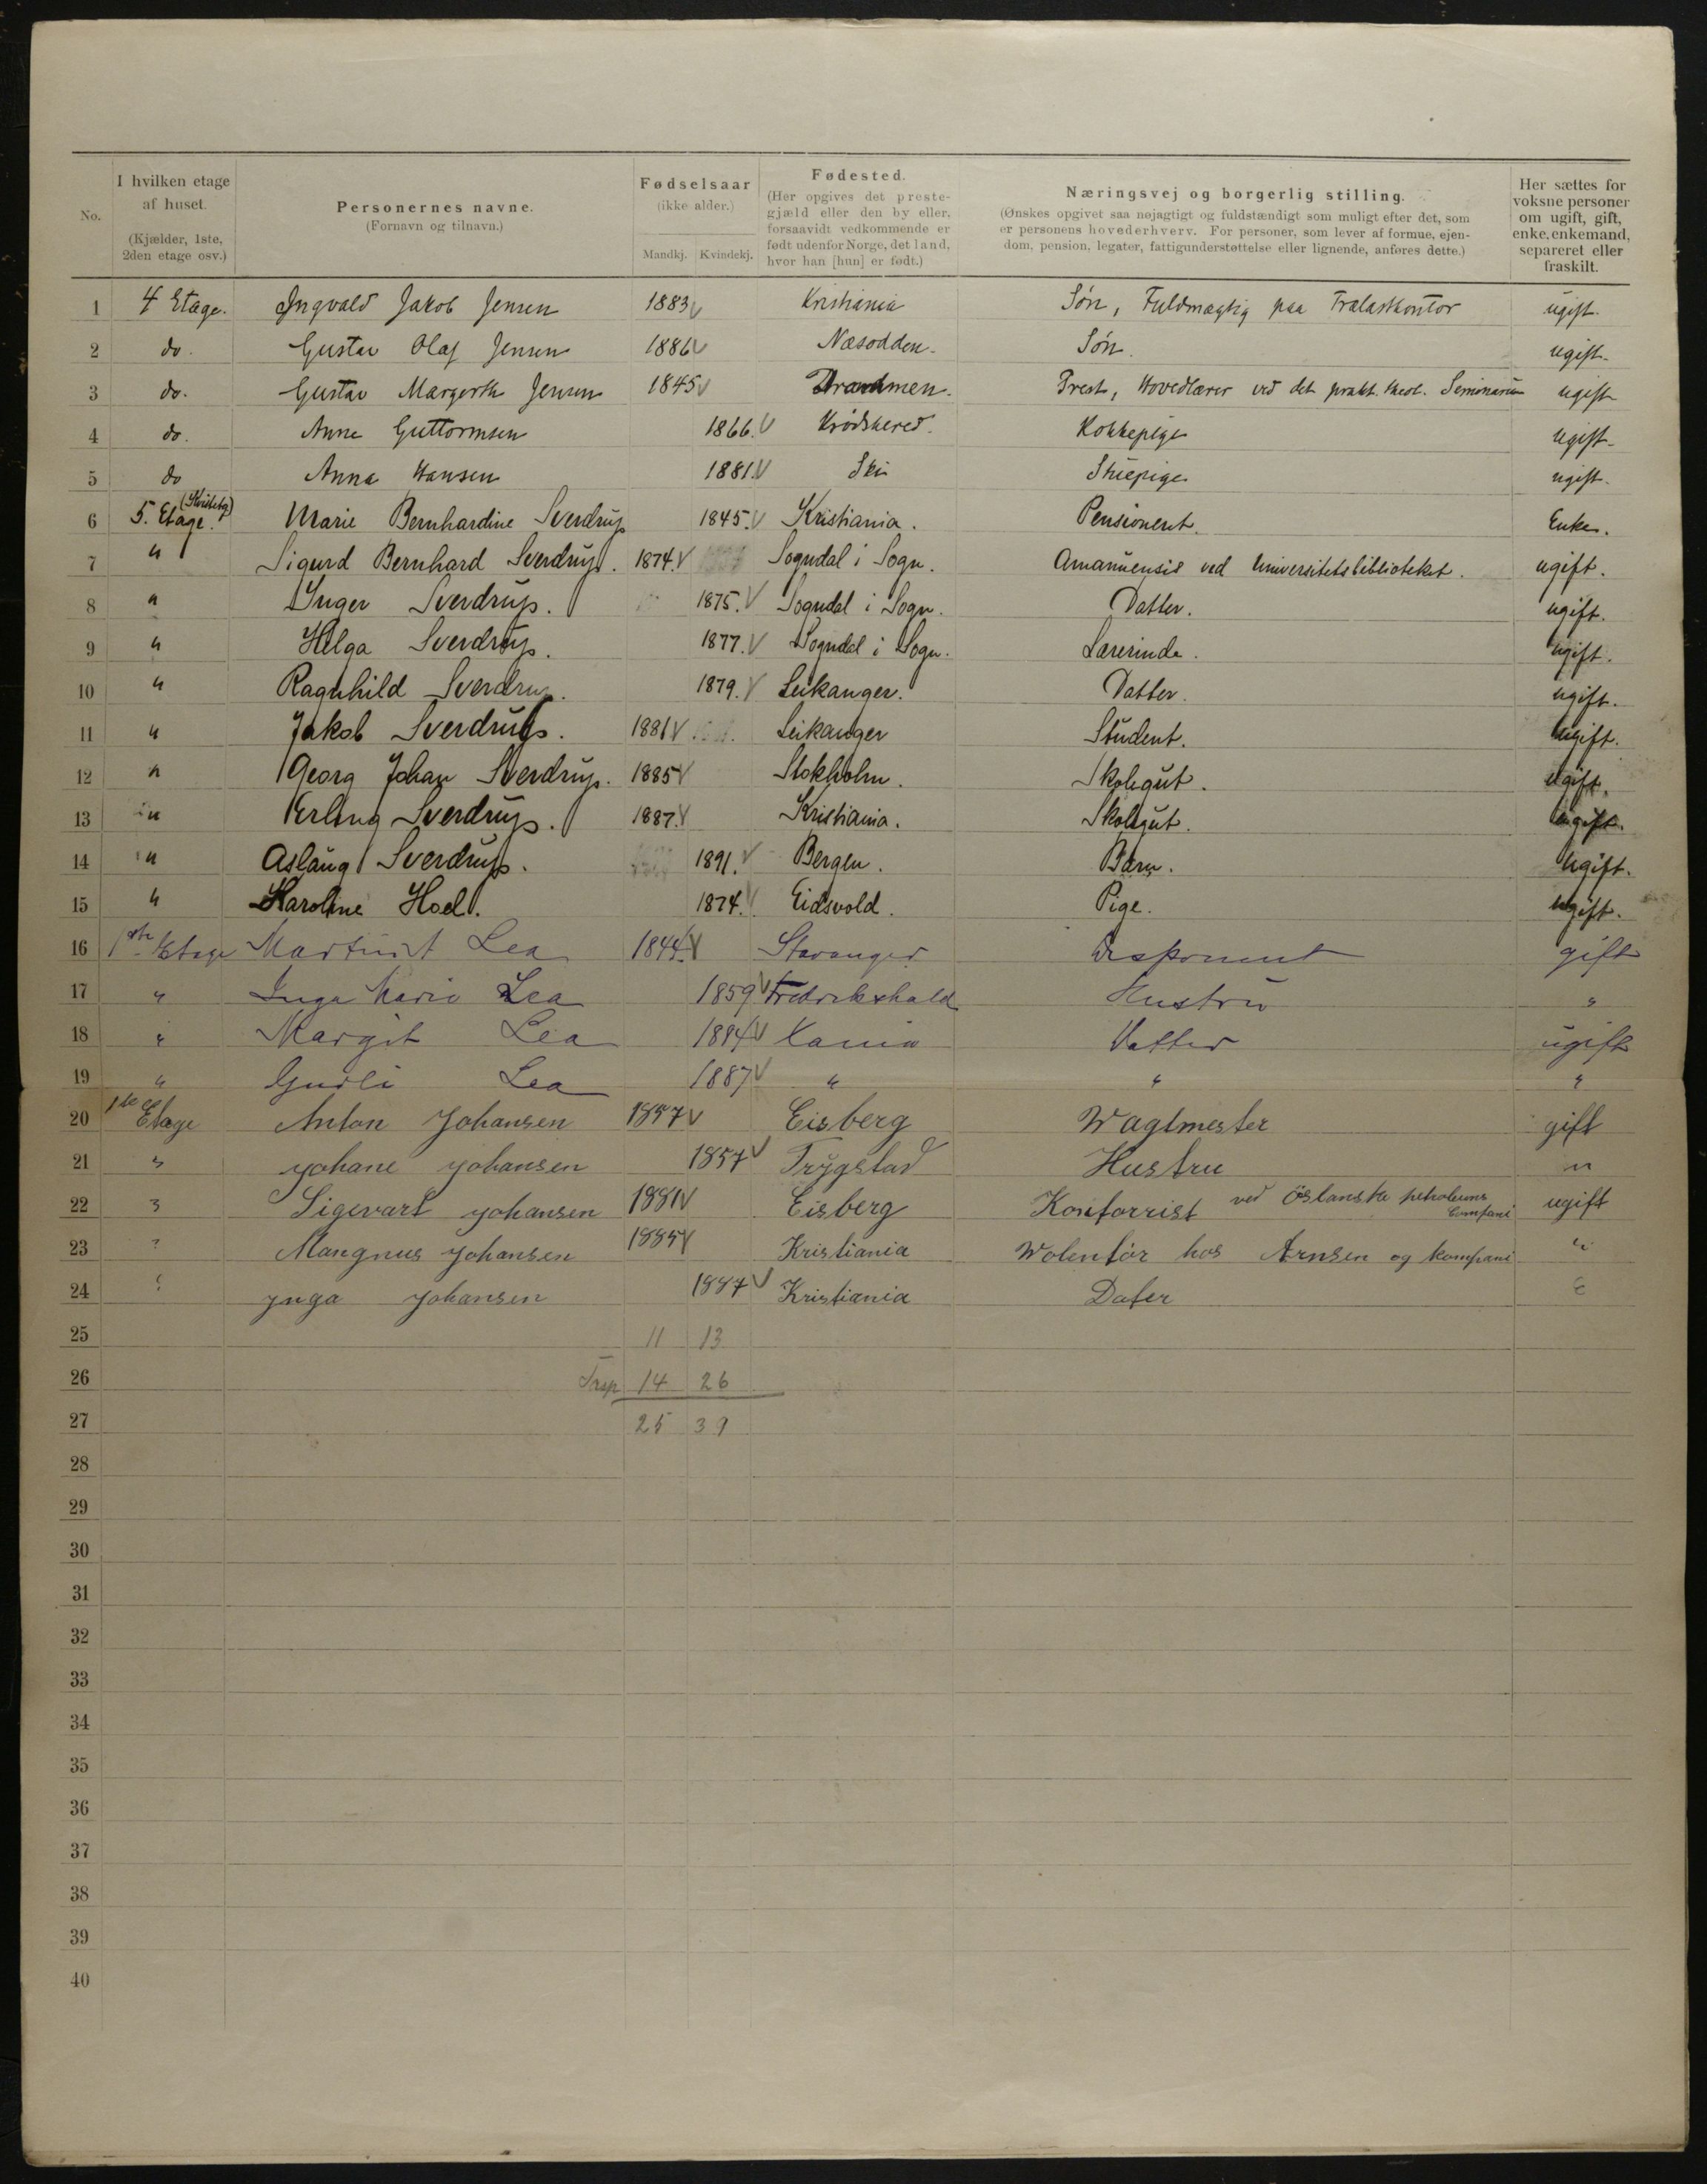 No. I hvilken etage af huset. (Kjælder, 1ste, 2den etage osv.) Personernes navne. (Fornavn og tilnavn.) Fødselsaar (ikke alder.) Mandkj. Kvindekj. Fødested. (Her opgives det prestegjæld eller den by eller, forsaavidt vedkommende er født udenfor Norge, det land, hvor han [hun] er født.) Næringsvej og borgerlig stilling. (Ønskes opgivet saa nøjagtigt og fuldstændigt som muligt efter det, som er personens hovederhverv. For personer, som lever af formue, ejendom, pension, legater, fattigunderstøttelse eller lignende, anføres dette.) Her sættes for voksne personer om ugift, gift, enke, enkemand, separeret eller fraskilt.
1 4 Etage. Ingvald Jakob Jensen 1883 Kristiania Søn, Fuldmægtig paa Trælastkontor ugift.
2 do. Gustav Olaf Jensen 1886 Næsodden. Søn. ugift.
3 do. Gustav Margerth Jensen 1845 Drammen. Prest, Hovedlærer ved det prakt. theol. Seminarium ugift
4 do. Anne Guttormsen 1866. Krødshered. Kokkepige ugift.
5 do Anna Hansen 1881. Ski Stuepige ugift.
6 5. Etage. Marie Bernhardine Sverdrup 1845. Kristiania. Pensionent. Enke.
7 " Sigurd Bernhard Sverdrup. 1874. Sogndal i Sogn. Amanuensis ved Universitetsbiblioteket. ugift.
8 " Inger Sverdrup. 1875. Sogndal i Sogn. Datter. ugift.
9 " Helga Sverdrup. 1877. Sogndal i Sogn. Lærerinde. ugift.
10 " Ragnhild Sverdrup. 1879. Leikanger. Datter. ugift.
11 " Jakob Sverdrup. 1881 Leikanger Student. ugift.
12 " Georg Johan Sverdrup. 1885 Stokholm. Skolegut. ugift.
13 " Erling Sverdrup. 1887. Kristiania. Skolegut. ugift.
14 " Aslaug Sverdrup. 1891. Bergen. Barn. ugift.
15 " Karoline Hoel. 1874. Eidsvold. Pige. ugift.
16 1ste Etage Martin A Lea 1844. Stavanger Disponent gift
17 " Inga Marie Lea 1859 Fredrikshald Hustru "
18 " Margit Lea 1884 Kania Datter ugift
19 " Gudli Lea 1887 " " "
20 1ste Etage Anton Johansen 1857 Eisberg Wagtmester gift
21 " Johane Johansen 1857 Trygstad Hustru "
22 " Sigevart Johansen 1881 Eisberg Kontorrist ved Östlanske petroleums Compani ugift
23 " Mangnus Johansen 1885 Kristiania Wolentør hos Arnsen og kompani "
24 " Ynga Johansen 1887 Kristiania Dater "
25 11 13
26 Trsp 14 26
27 25 39
28
29
30
31
32
33
34
35
36
37
38
39
40